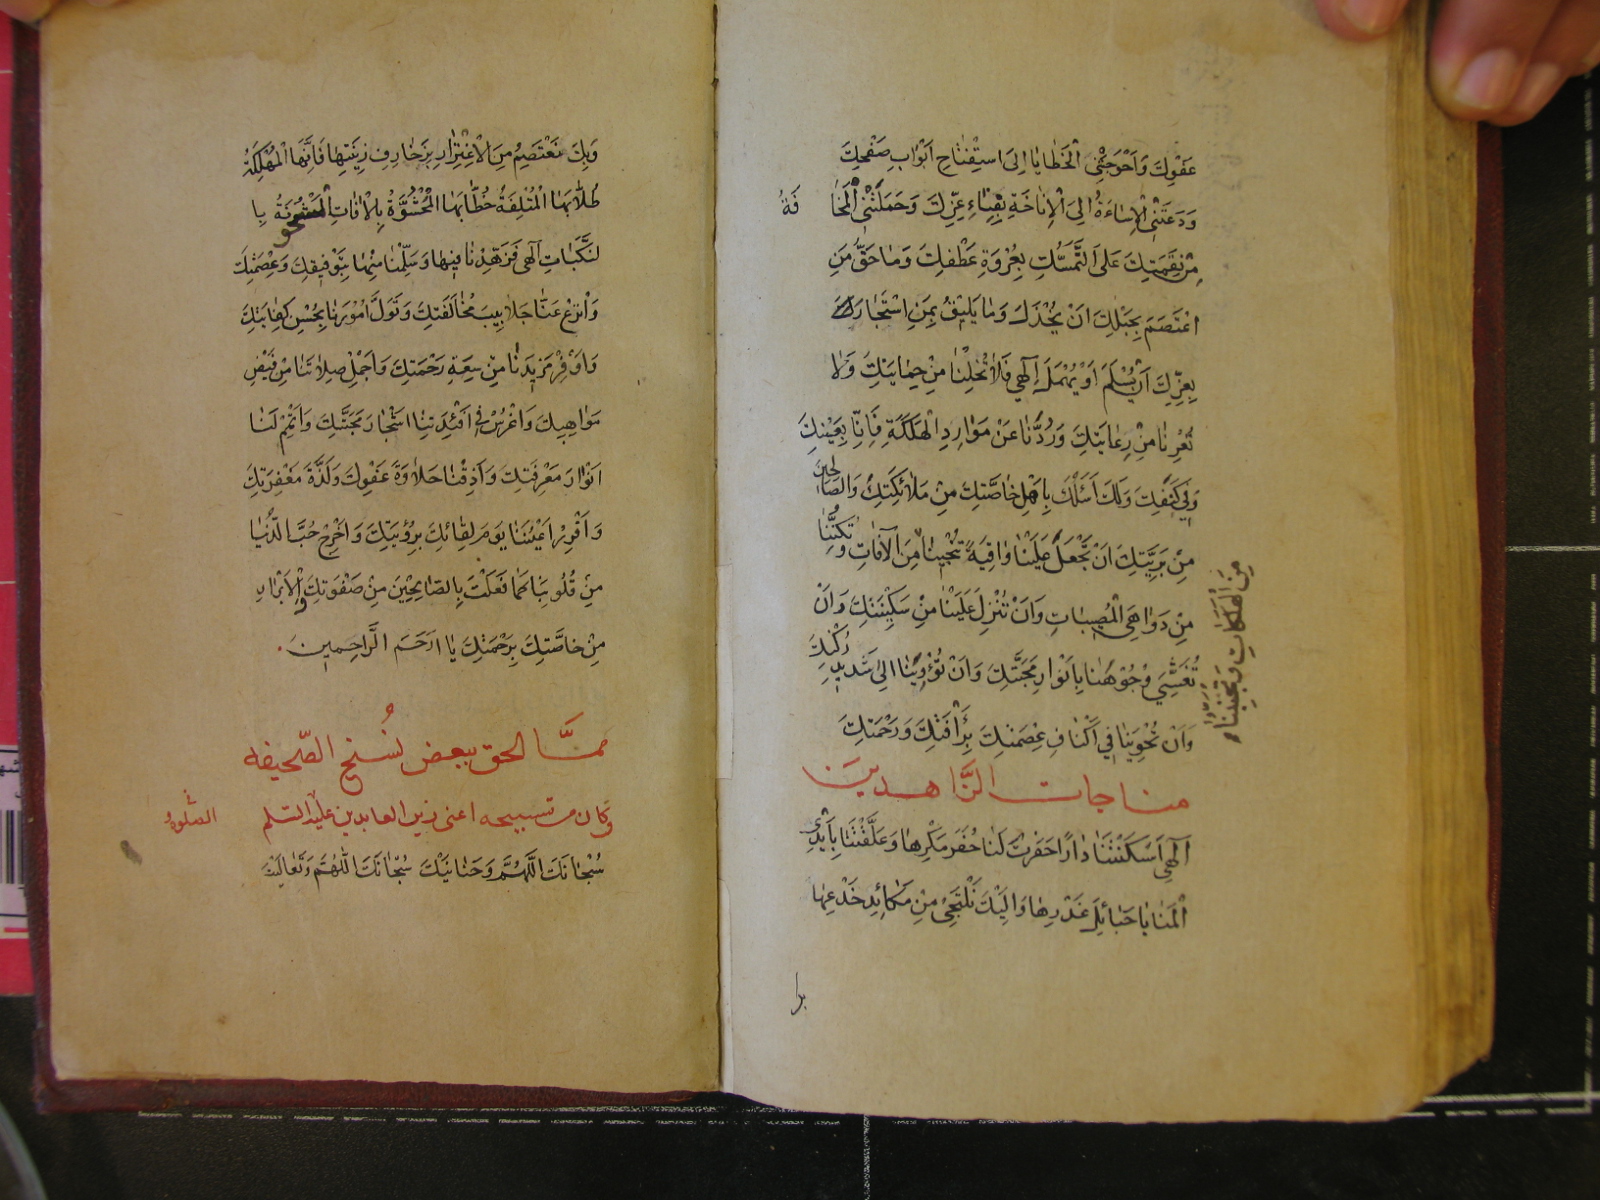 عَفْوِكَ وَاَحْوَجَتْنِي الْخَطَايَا اِلَى اسْتِفْتَاحِ اَبْوَابِ صَفْحِكَ
وَدَعَتْنِي الْاِسَاءَةُ اِلَى الْاِنَاخَةِ بِفِنَاءِ عِزِّكَ وَحَمَلَتْنِي الْمَخَا فَةُ
مِنْ نِقْمَتِكَ عَلَى التَّمَسُّكِ بِعُرْوَةِ عَطْفِكَ وَمَا حَقُّ مَنِ
اعْتَصَمَ بِحَبْلِكَ اَنْ يُخْذَلَ وَمَا يَلِيقُ بِمَنِ اسْتَجَارَ
بِعِزِّكَ اَنْ يُسْلَمَ اَوْ يُهْمَلَ اِلٰهِي فَلَا تُخْلِنَا مِنْ حِمَايَتِكَ وَلَا
تُعْرِنَا مِنْ رِعَايَتِكَ وَرُدَّنَا عَنْ مَوَارِدِ الْهَلَكَةِ فَاِنَّا بِعَيْنِكَ
وَفِي كَنَفِكَ وَلَكَ اَسْئَلُكَ بِاَهْلِ خَاصَّتِكَ مِنْ مَلَائِكَتِكَ وَالصَّالِحِينَ
مِنْ بَرِيَّتِكَ اَنْ تَجْعَلَ عَلَيْنَا وَاقِيَةً تُنْجِينَا مِنَ الْآفَاتِ وَتُكِنُّنَا
مِنَ الْهَلَكَاتِ وَتُجَنِّبُنَا
مِنْ دَوَاهِي الْمُصِيبَاتِ وَاَنْ تُنْزِلَ عَلَيْنَا مِنْ سَكِينَتِكَ وَاَنْ
تُغَشِّيَ وُجُوهَنَا بِاَنْوَارِ مَحَبَّتِكَ وَاَنْ تُؤْوِيَنَا اِلَى شَدِيدِ رُكْنِكَ
وَاَنْ تُحْوِيَنَا فِي اَكْنَافِ عِصْمَتِكَ بِرَأْفَتِكَ وَرَحْمَتِكَ
مناجات الزَّاهدينَ
اِلٰهِي اَسْكَنْتَنَا دَارًا حَفَرَتْ لَنَا حُفَرَ مَكْرِهَا وَعَلَّقَتْنَا بِاَيْدِي
الْمَنَايَا حَبَائِلِ غَدْرِهَا وَاِلَيْكَ نَلْتَجِئُ مِنْ مَكَائِدِ خُدَعِهَا
وَبِكَ نَعْتَصِمُ مِنَ الْاِغْتِرَارِ بِزَخَارِفِ زِينَتِهَا فَاِنَّهَا الْمُهْلِكَةُ
طُلَّابَهَا الْمُتْلِفَةُ خُطَّابَهَا الْمَحْشُوَّةُ بِالْآفَاتِ الْمَشْحُونَةُ بِا
لنَّكَبَاتِ اِلٰهِي فَزَهِّدْنَا فِيهَا وَسَلِّمْنَا مِنْهَا بِتَوْفِيقِكَ وَعِصْمَتِكَ
وَانْزِعْ عَنَّا جَلَابِيبَ مُخَالَفَتِكَ وَتَوَلَّ اُمُورَنَا بِحُسْنِ كِفَايَتِكَ
وَاَوْفِرْ مَزِيدَنَا مِنْ سِعَةِ رَحْمَتِكَ وَاَجْمِلْ صِلَاتَنَا مِنْ فَيْضِ
مَوَاهِبِكَ وَاغْرِسْ فِي اَفْئِدَتِنَا اَشْجَارَ مَحَبَّتِكَ وَاَتْمِمْ لَنَا
اَنْوَارَ مَعْرِفَتِكَ وَاَذِقْنَا حَلَاوَةَ عَفْوِكَ وَلَذَّةَ مَغْفِرَتِكَ
وَاَقْرِرْ اَعْيُنَنَا يَوْمَ لِقَائِكَ بِرُؤْيَتِكَ وَاَخْرِجْ حُبَّ الدُّنْيَا
مِنْ قُلُوبِنَا كَمَا فَعَلْتَ بِالصَّالِحِينَ مِنْ صَفْوَتِكَ وَالْاَبْرَارِ
مِنْ خَاصَّتِكَ بِرَحْمَتِكَ يَا اَرْحَمَ الرَّاحِمِينَ
ممَّا الحق ببعض نُسَخ الصّحيفه
وَكان من تسبيحه اعنى زين العابدين عليه السّلم الصّلوة
سُبْحَانَكَ اللَّهُمَّ وَحَنَانَيْكَ سُبْحَانَكَ اللَّهُمَّ وَتَعَالَيْتَ